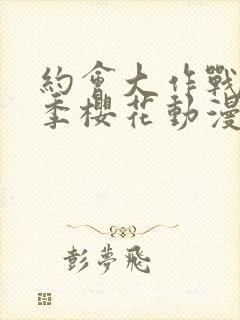 約會大作戰
季櫻花動漫
彭夢飛